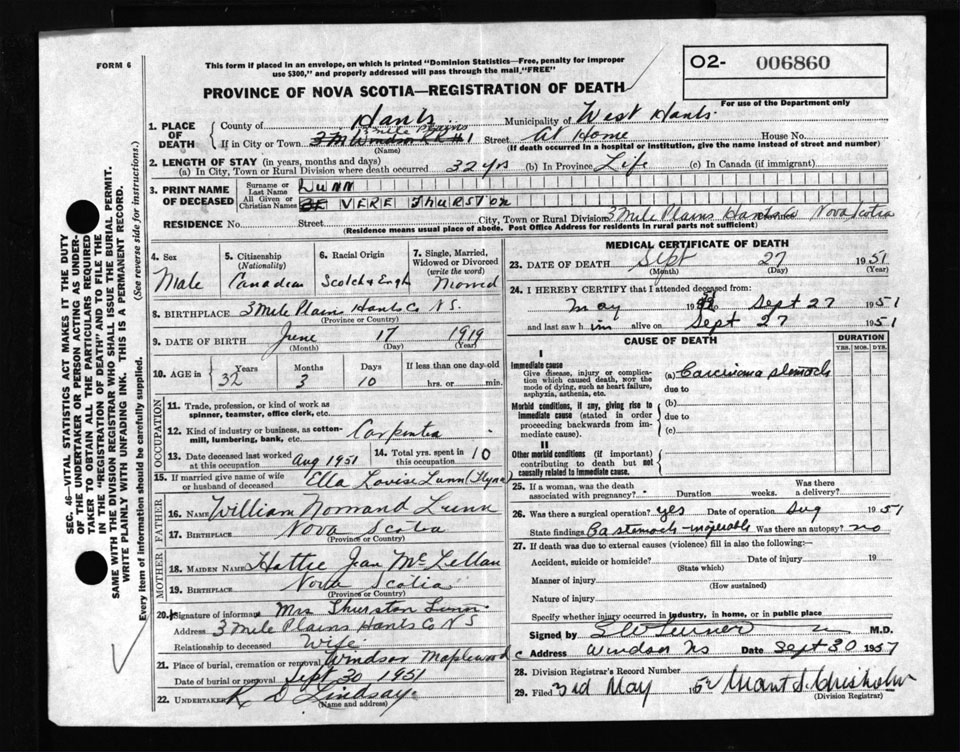 FORM 6
This form if placed in an envelope, on which is printed "Dominion Statistics—Free, penalty for improper
use $300," and properly addressed will pass through the mail "FREE"
O2- 006860
PROVINCE OF NOVA SCOTIA—REGISTRATION OF DEATH
For use of the Department only
1. PLACE OF DEATH
County of Hants Municipality of West Hants
If in City or Town 3 Mile Plains Street At Home House No.
(Name) (If death occurred in a hospital or institution, give the name instead of street and number)
2. LENGTH OF STAY (in years, months and days)
(a) In City, Town or Rural Division where death occurred 32 yrs (b) In Province Life (c) In Canada (if immigrant)
3. PRINT NAME OF DECEASED
Surname or Last Name LUNN
All Given or Christian Names VERE THURSTON
RESIDENCE No. Street City, Town or Rural Division 3 Mile Plains Hants Co Nova Scotia
(Residence means usual place of abode. Post Office Address for residents in rural parts not sufficient)
4. Sex Male
5. Citizenship (Nationality) Canadian
6. Racial Origin Scotch & Engh
7. Single, Married, Widowed or Divorced (write the word)
8. BIRTHPLACE 3 Mile Plain Hants Co N.S.
(Province or Country)
9. DATE OF BIRTH June 17 1919
(Month) (Day) (Year)
10. AGE in Years 32 Months 3 Days 10 If less than one day-old hrs. or min.
OCCUPATION
11. Trade, profession, or kind of work as spinner, teamster, office clerk, etc.
12. Kind of industry or business, as cotton-mill, lumbering, bank, etc.
13. Date deceased last worked at this occupation Aug 1951 14. Total yrs. spent in this occupation 10
15. If married give name of wife or husband of deceased Ella Louise Lunn
FATHER
16. NAME William Normand Lunn
17. BIRTHPLACE Nova Scotia
(Province or Country)
MOTHER
18. MAIDEN NAME Hattie Jean McLellan
19. BIRTHPLACE Nova Scotia
(Province or Country)
20. Signature of informant Mrs Thurston Lunn
Address 3 Mile Plains Hants Co N S
Relationship to deceased Wife
21. Place of burial, cremation or removal Windsor Maplewood
Date of burial or removal Sept 30 1951
22. UNDERTAKER R D Lindsay
(Name and address)
MEDICAL CERTIFICATE OF DEATH
23. DATE OF DEATH Sept 27 1951
(Month) (Day) (Year)
24. I HEREBY CERTIFY that I attended deceased from:
May 19 to Sept 27 1951
and last saw h im alive on Sept 27 1951
CAUSE OF DEATH
DURATION
YRS. MOS. DYS.
I
Immediate cause
Give disease, injury or complication which caused death, NOT the mode of dying, such as heart failure, asphyxia, asthenia, etc.
(a) Carcinoma stomach
due to
Morbid conditions, if any, giving rise to immediate cause (stated in order proceeding backwards from immediate cause).
(b)
due to
(c)
II
Other morbid conditions (if important) contributing to death but not causally related to immediate cause.
25. If a woman, was the death associated with pregnancy? Duration weeks. Was there a delivery?
26. Was there a surgical operation? yes Date of operation Aug 1951
State findings Ca stomach inoperable Was there an autopsy? no
27. If death was due to external causes (violence) fill in also the following:—
Accident, suicide or homicide? Date of injury 19
(State which)
Manner of injury
(How sustained)
Nature of injury
Specify whether injury occurred in industry, in home, or in public place
Signed by M.D.
Address Windsor NS Date Sept 30 1951
28. Division Registrar's Record Number
29. Filed 3rd May 52
(Division Registrar)
SEC. 46—VITAL STATISTICS ACT MAKES IT THE DUTY
OF THE UNDERTAKER OR PERSON ACTING AS UNDER-
TAKER TO OBTAIN ALL THE PARTICULARS REQUIRED
IN THE "REGISTRATION OF DEATH" AND TO FILE THE
SAME WITH THE DIVISION REGISTRAR WHO SHALL ISSUE THE BURIAL PERMIT.
WRITE PLAINLY WITH UNFADING INK. THIS IS A PERMANENT RECORD.
Every item of information should be carefully supplied. (See reverse side for instructions.)